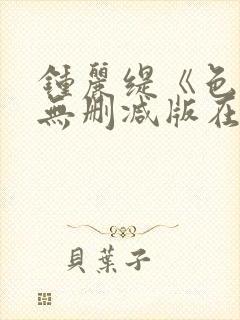 鍾麗缇《色
無删减版在
貝葉子